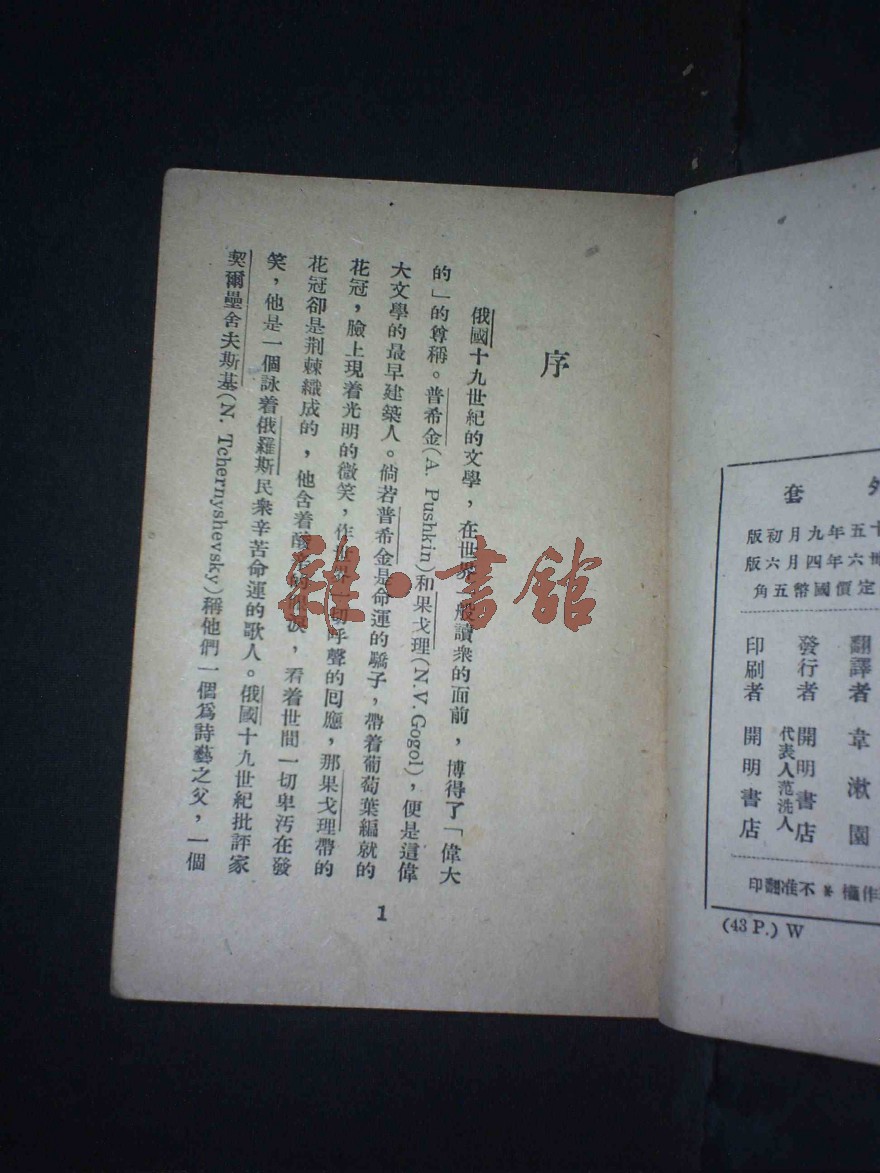 外套
十五年九月初版
卅六年四月六版
定價國幣五角
翻譯者 韋漱園
發行者 開明書店
代表人范洗人
印刷者 開明書店
作權※不准翻印
(43 P.) W
序
俄國十九世紀的文學，在世界一般讀衆的面前，博得了「偉大
的」的尊稱。普希金(A. Pushkin)和果戈理(N.V.Gogol)，便是這偉
大文學的最早建築人。倘若普希金是命運的驕子，帶着葡萄葉編就的
花冠，臉上現着光明的微笑，作世界一切呼聲的囘應，那果戈理帶的
花冠卻是荆棘織成的，他含着眼淚，看着世間一切卑汚在發
笑，他是一個詠着俄羅斯民衆辛苦命運的歌人。俄國十九世紀批評家
契爾壘舍夫斯基(N. Tchernyshevsky)稱他們一個爲詩藝之父，一個
1
雜·書館